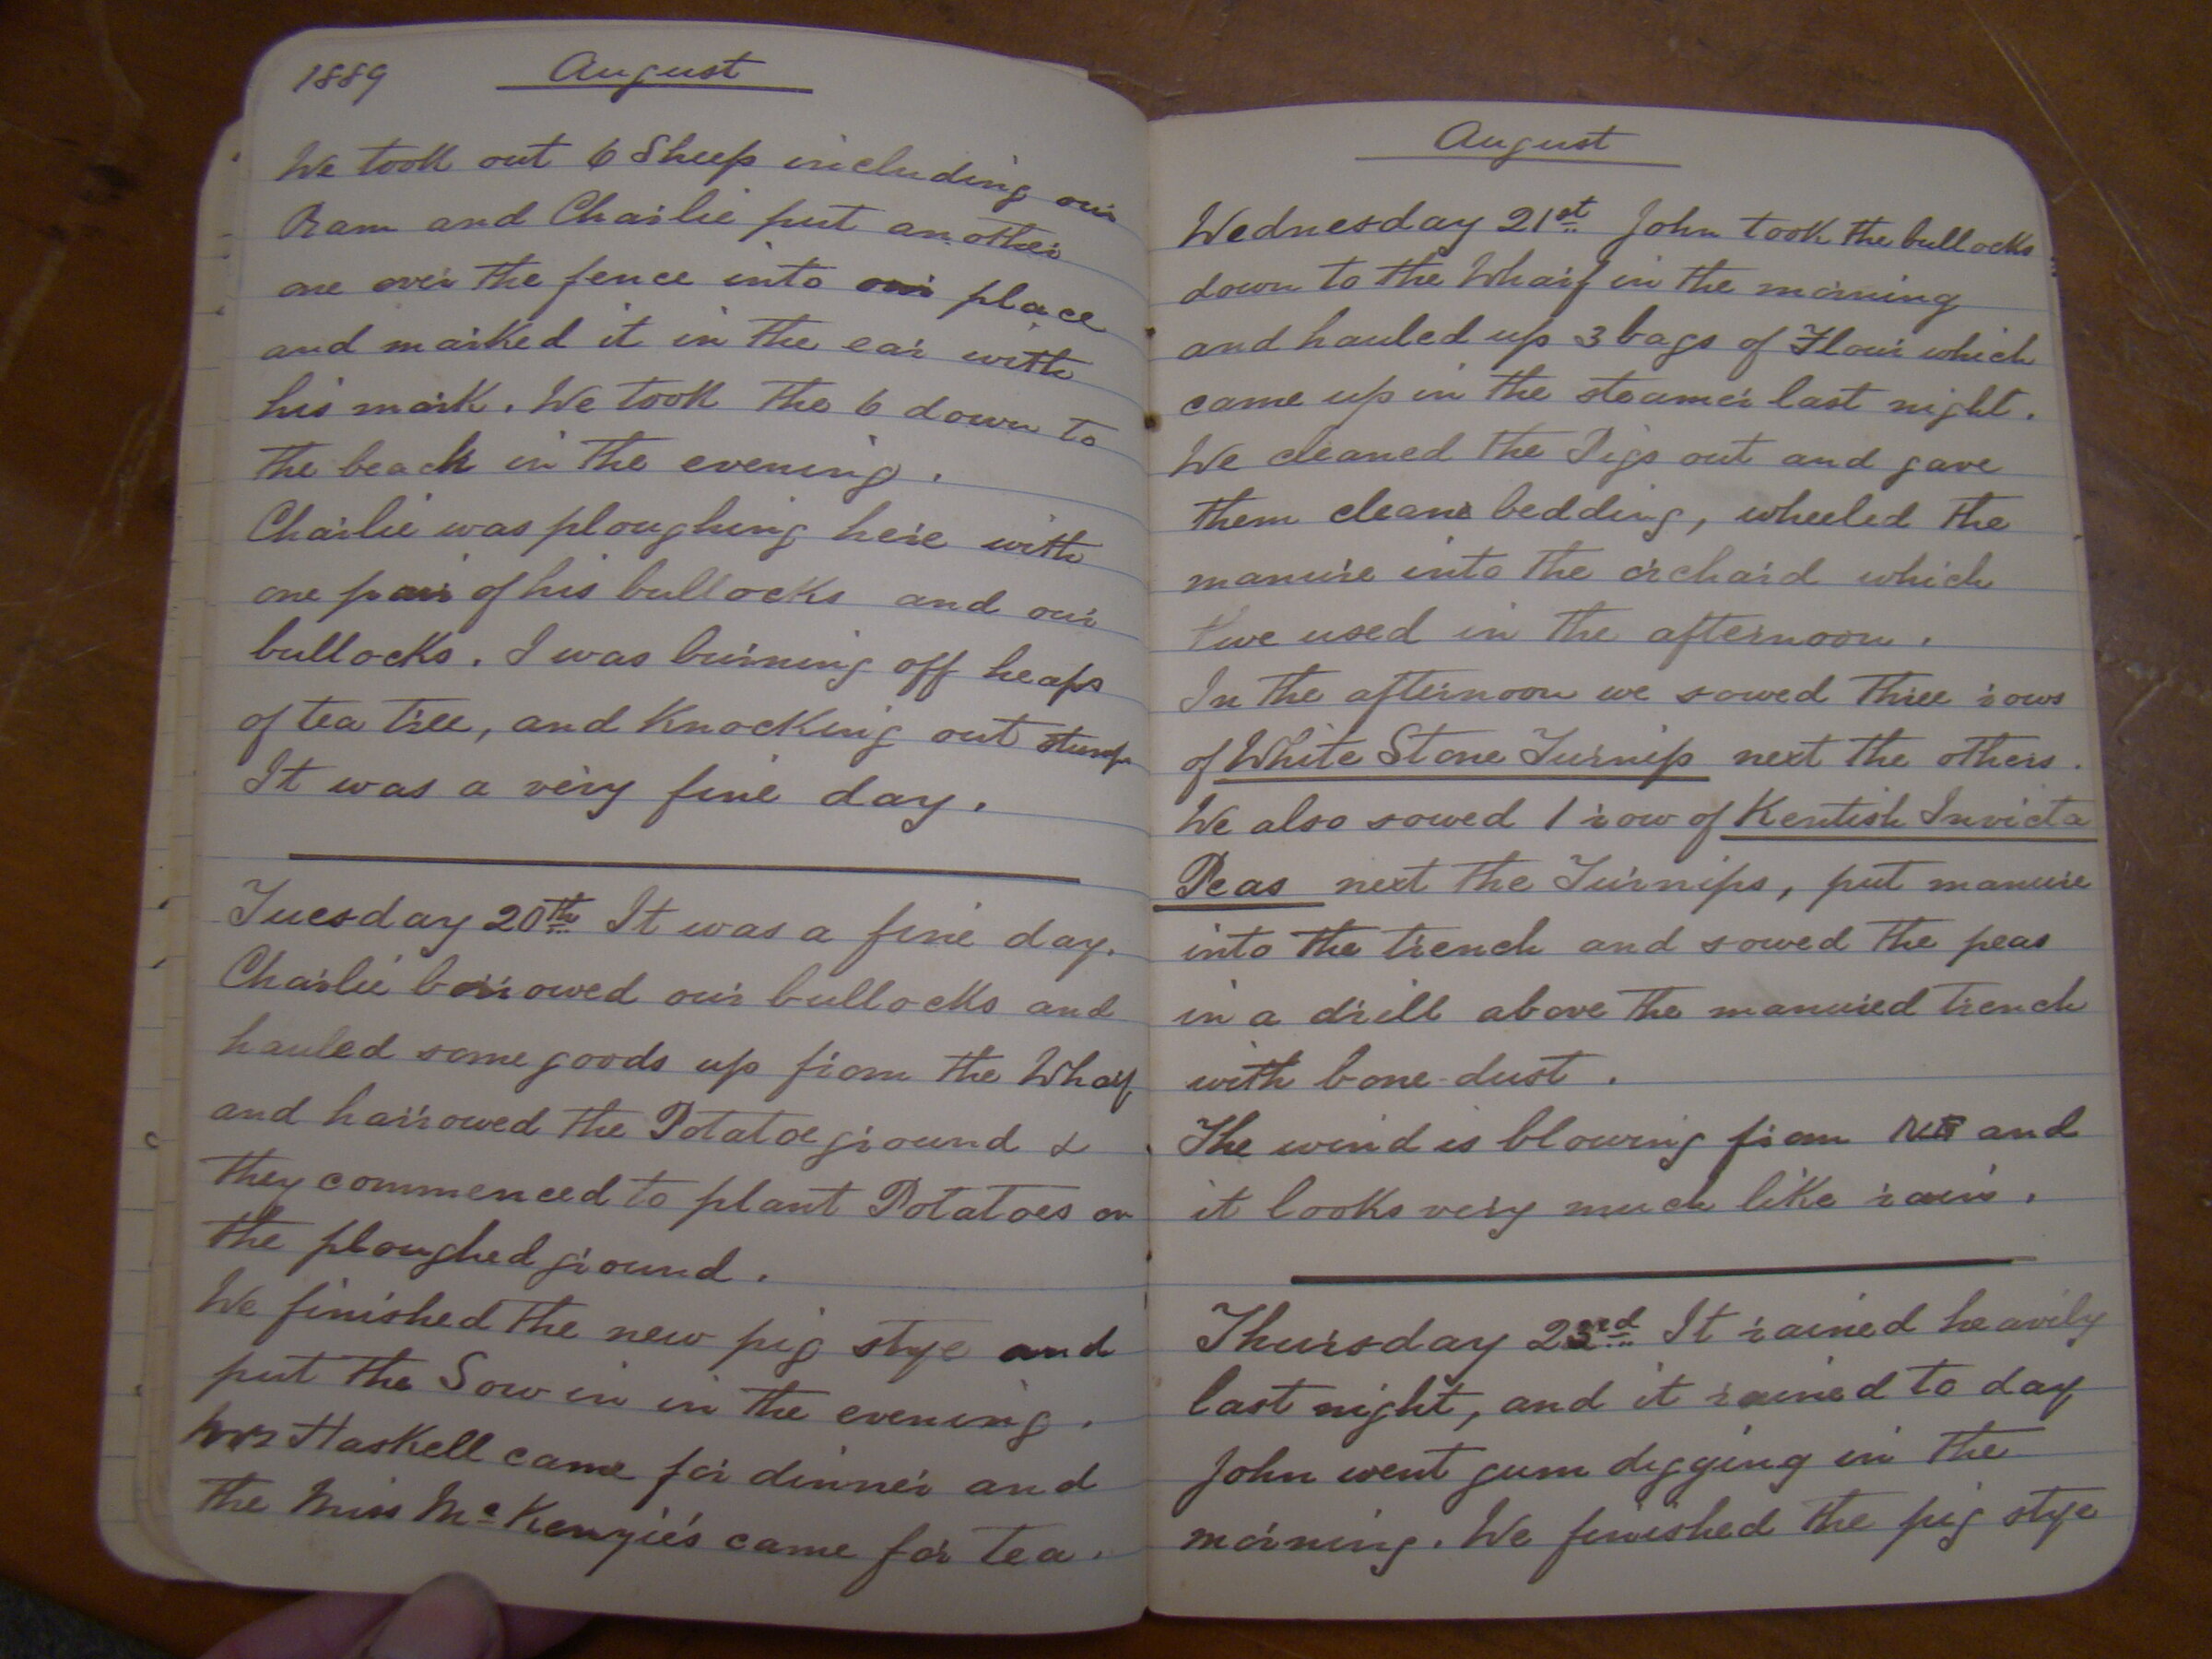 1889 August
We took out 6 Sheep including our
Ram and Charlie put another
one over the fence into our place
and marked it in the ear with
his mark. We took the 6 down to
the beach in the evening.
Charlie was ploughing here with
one pair of his bullocks and our
bullocks. I was burning off heaps
of tea tree, and Knocking out stumps
It was a very fine day.
Tuesday 20th It was a fine day.
Charlie borrowed our bullocks and
hauled some goods up from the Wharf
and harrowed the Potatoe ground &
they commenced to plant Potatoes on
the ploughed ground.
We finished the new pig stye and
put the Sow in in the evening.
Mrs Haskell came for dinner and
the Miss McKenzie's came for tea.
August
Wednesday 21st John took the bullocks
down to the Wharf in the morning
and hauled up 3 bags of Flour which
came up in the steamer last night.
We cleaned the Pigs out and gave
them clean bedding, wheeled the
manure into the orchard which
we used in the afternoon.
In the afternoon we sowed three rows
of White Stone Turnip next the others.
We also sowed 1 row of Kentish Invicta
Peas next the Turnips, put manure
into the trench and sowed the peas
in a drill above the manured trench
with bone-dust.
The wind is blowing from and
it looks very much like rain.
Thursday It rained heavily
last night, and it rained to day
John went gum digging in the
morning. We finished the pig stye